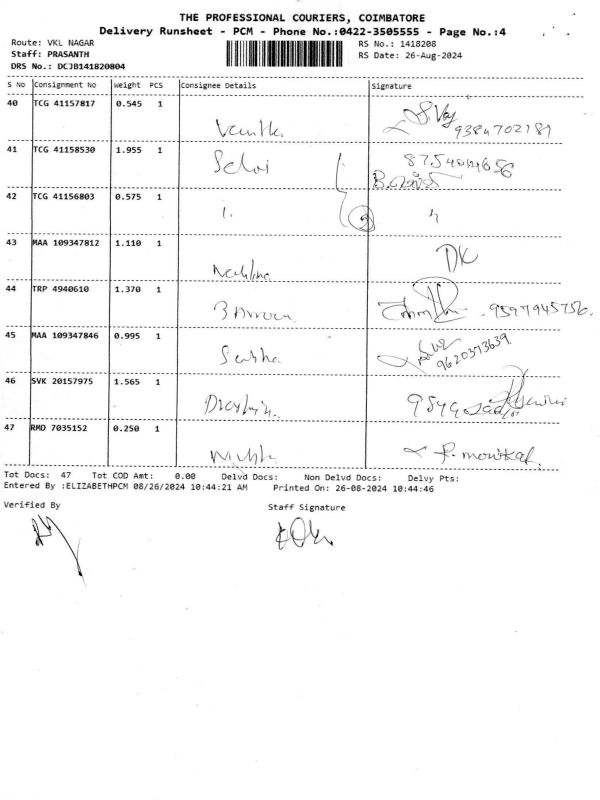 THE PROFESSIONAL COURIERS, COIMBATORE
Delivery Runsheet - PCM - Phone No.:0422-3505555 - Page No.:4
Route: VKL NAGAR
RS No.: 1418208
Staff: PRASANTH
RS Date: 26-Aug-2024
DRS No.: DCJB141820804
S No Consignment No Weight PCS Consignee Details Signature
40 TCG 41157817 0.545 1
9384702189
41 TCG 41158530 1.955 1 Selvi
42 TCG 41156803 0.575 1
43 MAA 109347812 1.110 1 DK
44 TRP 4940610 1.370 1
9597945756
45 MAA 109347846 0.995 1
9620373639
46 SVK 20157975 1.565 1
47 RMD 7035152 0.250 1
Tot Docs: 47 Tot COD Amt: 0.00 Delvd Docs: Non Delvd Docs: Delvy Pts:
Entered By :ELIZABETHPCM 08/26/2024 10:44:21 AM Printed On: 26-08-2024 10:44:46
Verified By
Staff Signature